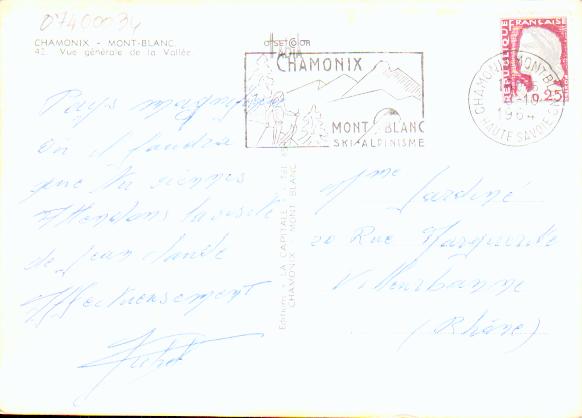 07400034
CHAMONIX - MONT-BLANC
42. Vue générale de la Vallée
Pays magnifique
où il faudra
que tu viennes
Attendons la visite
de Jean Claude
Affectueusement
OFFSET COLOR
CHAMONIX
MONT BLANC
SKI-ALPINISME
CHAMONIX MONT-BLANC
1964
HAUTE SAVOIE
REPUBLIQUE FRANÇAISE
0,25
Editions LA CAPITALE
CHAMONIX - MONT BLANC
Mme Jardiné
20 Rue Marguerite
Villeurbanne
(Rhône)